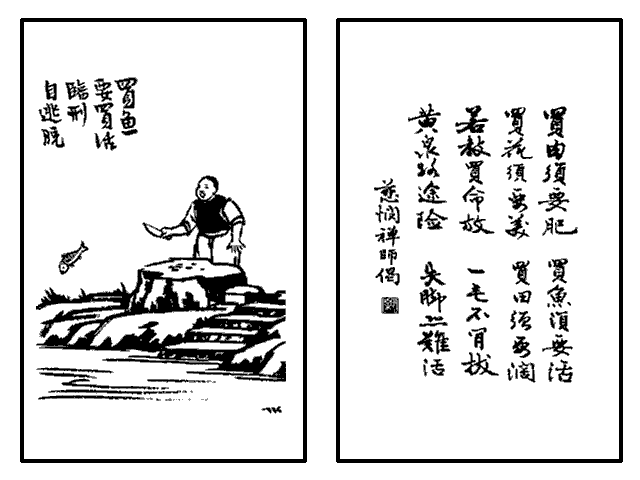 買鱼
要買活
臨刑
自逃脱
買肉須要肥 買魚須要活
買花須要美 買田須要阔
若教買命放 一毛不肯拔
黄泉路途险 失脚難活
慈憫禅師偈